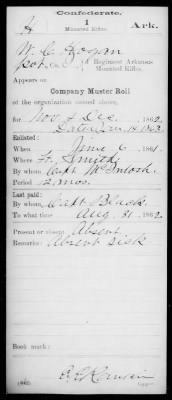 Confederate.
1
Mounted Rifles.
Ark.
W. C. Hogan
Regiment Arkansas
Mounted Rifles.
Appears on
Company Muster Roll
of the organization named above,
for Nov & Dec, 1862.
14 1863
Enlisted:
When June 6, 1861.
Where Ft. Smith
By whom Capt McIntosh
Period 12 mos.
Last paid:
By whom Capt Black
To what time Aug. 31, 1862.
Present or absent Absent
Remarks: Absent sick
Book mark: